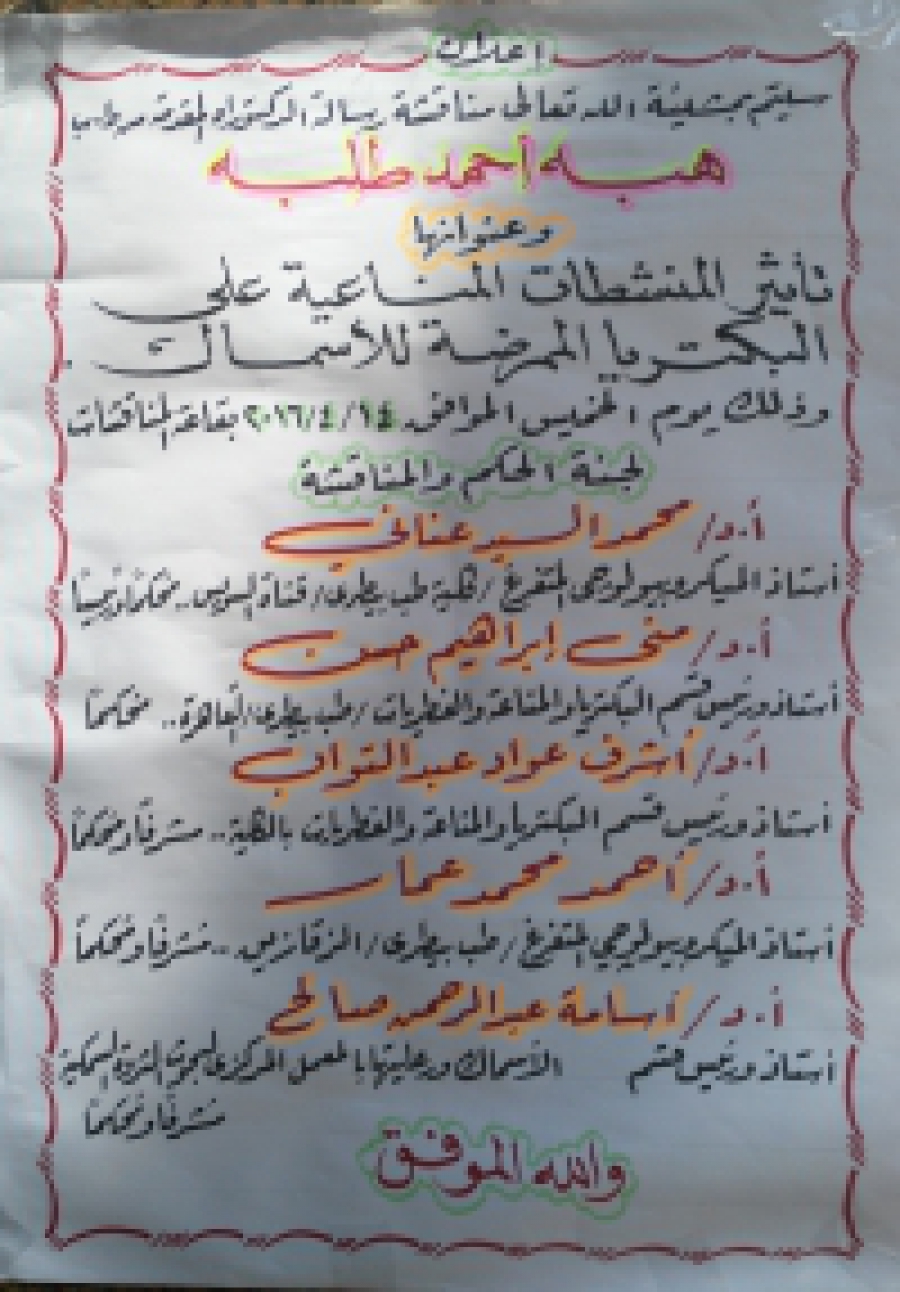 إعلان
سيتم بمشيئة الله تعالى مناقشة رسالة الدكتوراه المقدمة من ط.ب
هبه أحمد طلبه
وعنوانها
تأثير المنشطات المناعية على
البكتريا الممرضة للأسماك .
وذلك يوم الخميس الموافق ٢٠١٦/٤/١٤ بقاعة المناقشات
لجنة الحكم والمناقشة
أ.د/ محمد السيد عناني
أستاذ الميكروبيولوجى المتفرغ / كلية طب بيطرى / قناة السويس .. محكماً ورئيساً
أ.د/ منى إبراهيم حسن
أستاذ ورئيس قسم البكتريا والمناعة والفطريات / طب بيطرى / القاهرة .. محكماً
أ.د/ أشرف عواد عبدالتواب
أستاذ ورئيس قسم البكتريا والمناعة والفطريات بالكلية .. مشرفاً ومحكماً
أ.د/ أحمد محمد عمار
أستاذ الميكروبيولوجي المتفرغ / طب بيطرى / الزقازيق .. مشرفاً ومحكماً
أ.د/ أسامة عبدالرحمن صالح
أستاذ ورئيس قسم الأسماك ورعايتها بالمعمل المركزى لبحوث الثروة السمكية
مشرفاً ومحكماً
والله الموفق